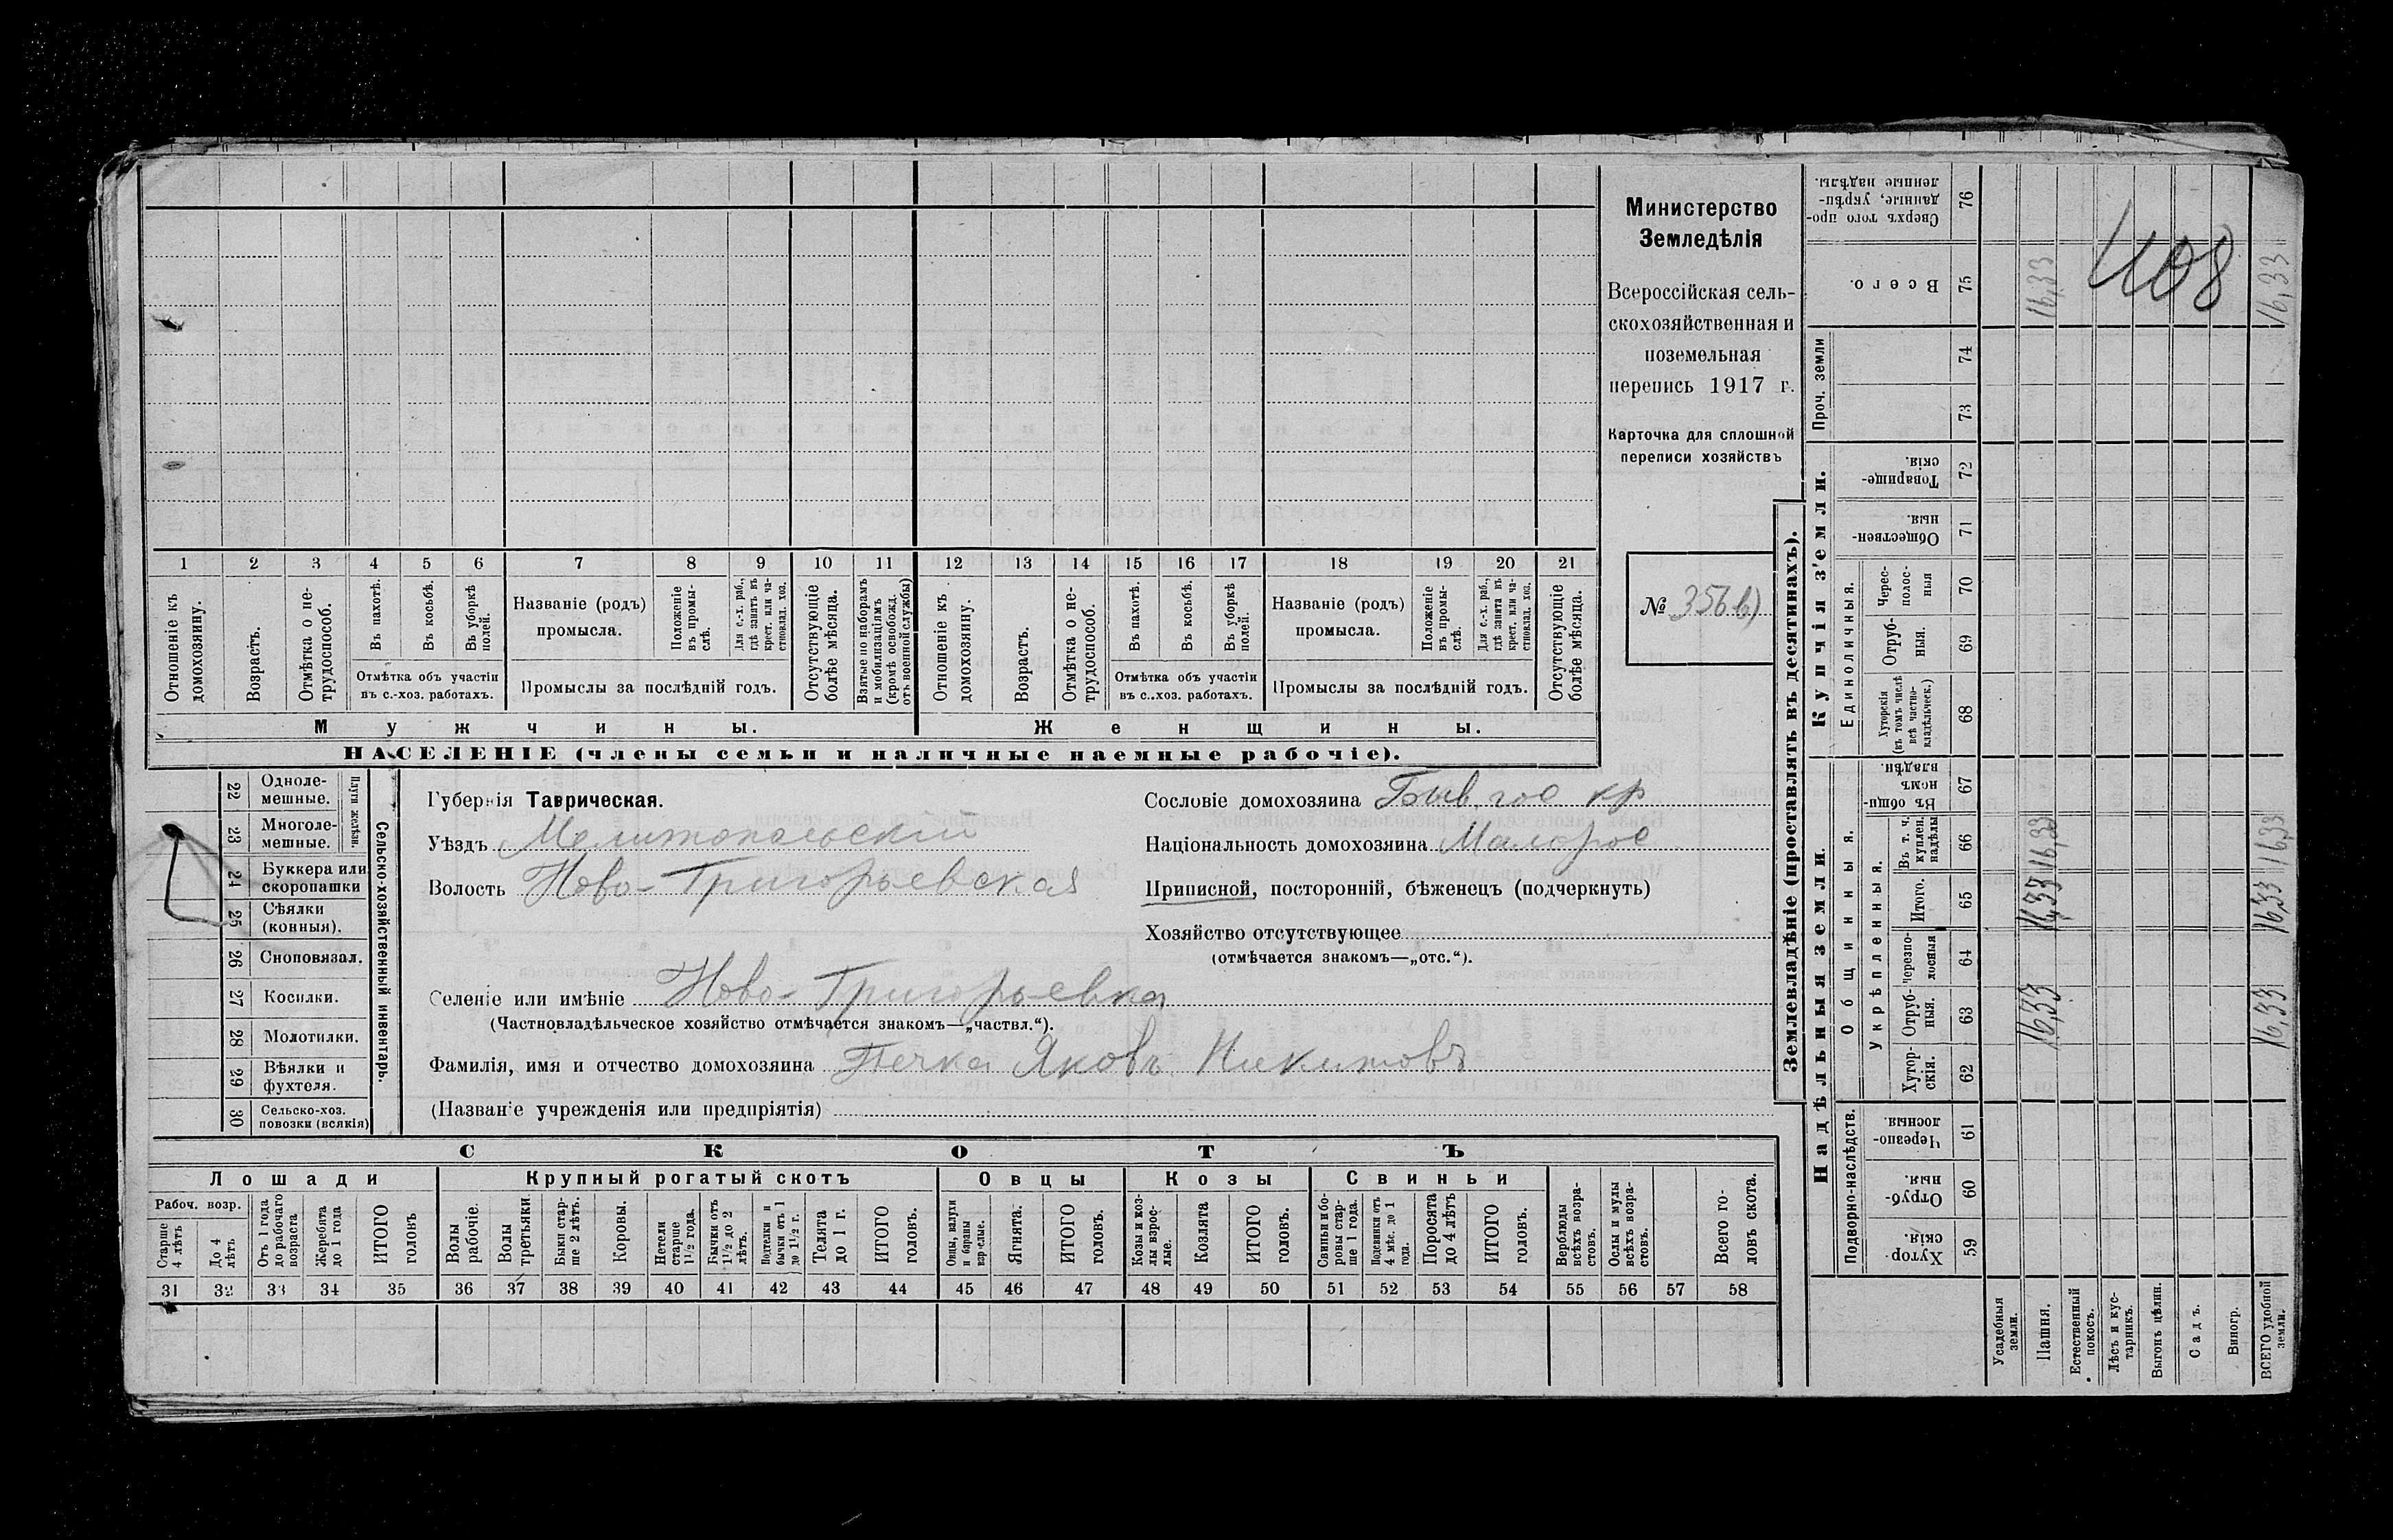 Министерство
Земледѣлія
Всероссійская сель-
скохозяйственная и
поземельная
перепись 1917 г.
Карточка для сплошной
переписи хозяйствъ
№ 356 в)
1 2 3 4 5 6 7 8 9 10 11 12 13 14 15 16 17 18 19 20 21
Отношеніе къ домохозяину.
Возрастъ.
Отмѣтка о не-трудоспособ.
Въ пахотѣ.
Въ косьбѣ.
Въ уборкѣ полей.
Отмѣтка объ участіи
въ с.-хоз. работахъ.
Названіе (родъ)
промысла.
Положеніе въ промы-слѣ.
Для с.-х. раб., гдѣ занятъ въ крест. или ча-стновлад. хоз.
Промыслы за послѣдній годъ.
Отсутствующіе болѣе мѣсяца.
Взятые по наборамъ и мобилизаціямъ (кромѣ освобожд. отъ военной службы)
Отношеніе къ домохозяину.
Возрастъ.
Отмѣтка о не-трудоспособ.
Въ пахотѣ.
Въ косьбѣ.
Въ уборкѣ полей.
Отмѣтка объ участіи
въ с.-хоз. работахъ.
Названіе (родъ)
промысла.
Положеніе въ промы-слѣ.
Для с.-х. раб., гдѣ занята въ крест. или ча-стновлад. хоз.
Промыслы за послѣдній годъ.
Отсутствующіе болѣе мѣсяца.
Мужчины. Женщины.
НАСЕЛЕНІЕ (члены семьи и наличные наемные рабочіе).
22 Одноле-мешные.
23 Многоле-мешные.
Плуги желѣзн.
24 Буккера или скоропашки
25 Сѣялки (конныя).
26 Сноповязал.
27 Косилки.
28 Молотилки.
29 Вѣялки и фухтеля.
30 Сельско-хоз. повозки (всякія)
Сельско-хозяйственный инвентарь.
Губернія Таврическая.
Уѣздъ Мелитопольскій
Волость Ново-Григорьевская
Сословіе домохозяина Быв. гос кр
Национальность домохозяина Малорос
Приписной, посторонній, бѣженецъ (подчеркнуть)
Хозяйство отсутствующее
(отмѣчается знакомъ—„отс.“).
Селеніе или имѣніе Ново-Григорьевка
(Частновладѣльческое хозяйство отмѣчается знакомъ—„частвл.“).
Фамилія, имя и отчество домохозяина Печка Яковъ Никитовъ
(Названіе учрежденія или предпріятія)
СКОТЪ
Лошади Крупный рогатый скотъ Овцы Козы Свиньи
Рабоч. возр.
Старше 4 лѣтъ
До 4 лѣтъ
Отъ 1 года до рабочаго возраста
Жеребята до 1 года
ИТОГО головъ
Волы рабочіе.
Волы третьяки.
Быки стар-ше 2 лѣтъ.
Коровы.
Нетели старше 1½ года.
Бычки отъ 1½ до 2 лѣтъ.
Подтелки и бычки отъ 1 до 1½ г.
Телята до 1 г.
ИТОГО головъ.
Овцы, валухи и бараны взрослые.
Ягнята.
ИТОГО головъ.
Козы и коз-лы взрос-лые.
Козлята
ИТОГО головъ.
Свиньи и бо-ровы стар-ше 1 года.
Подсвинки отъ 4 мѣс. до 1 года.
Поросята до 4 лѣтъ
ИТОГО головъ.
Верблюды всѣхъ возра-стовъ.
Ослы и мулы всѣхъ возра-стовъ.
Всего го-ловъ скота.
31 32 33 34 35 36 37 38 39 40 41 42 43 44 45 46 47 48 49 50 51 52 53 54 55 56 57 58
Землевладѣніе (проставлять въ десятинахъ).
Надѣльныя земли.
Купчія земли.
Проч. земли
Подворно-наслѣдств.
Общинныя.
Укрѣпленныя.
Единоличныя.
Хутор-скія. 59
Отруб-ныя. 60
Черезпо-лосныя 61
Хутор-скія. 62
Отруб-ныя. 63
Черезпо-лосныя 64
Итого. 65
Въ т. ч. куплен. надѣлы 66
Въ общин-номъ владѣн. 67
Хуторскія (въ томъ числѣ всѣ частно-владѣльческ.) 68
Отруб-ныя. 69
Черес-полос-ныя 70
Обществен-ныя. 71
Товарище-скія. 72
73
74
Всего. 75
Сверхъ того про-данные, укрѣп-ленные надѣлы. 76
Усадебныя земли.
Пашня.
16,33 16,33 16,33 16,33
Естественный покосъ.
Лѣсъ и кус-тарникъ.
Выгонъ цѣлин.
Садъ.
Виногр.
ВСЕГО удобной земли.
16,33 16,33 16,33 16,33
1108